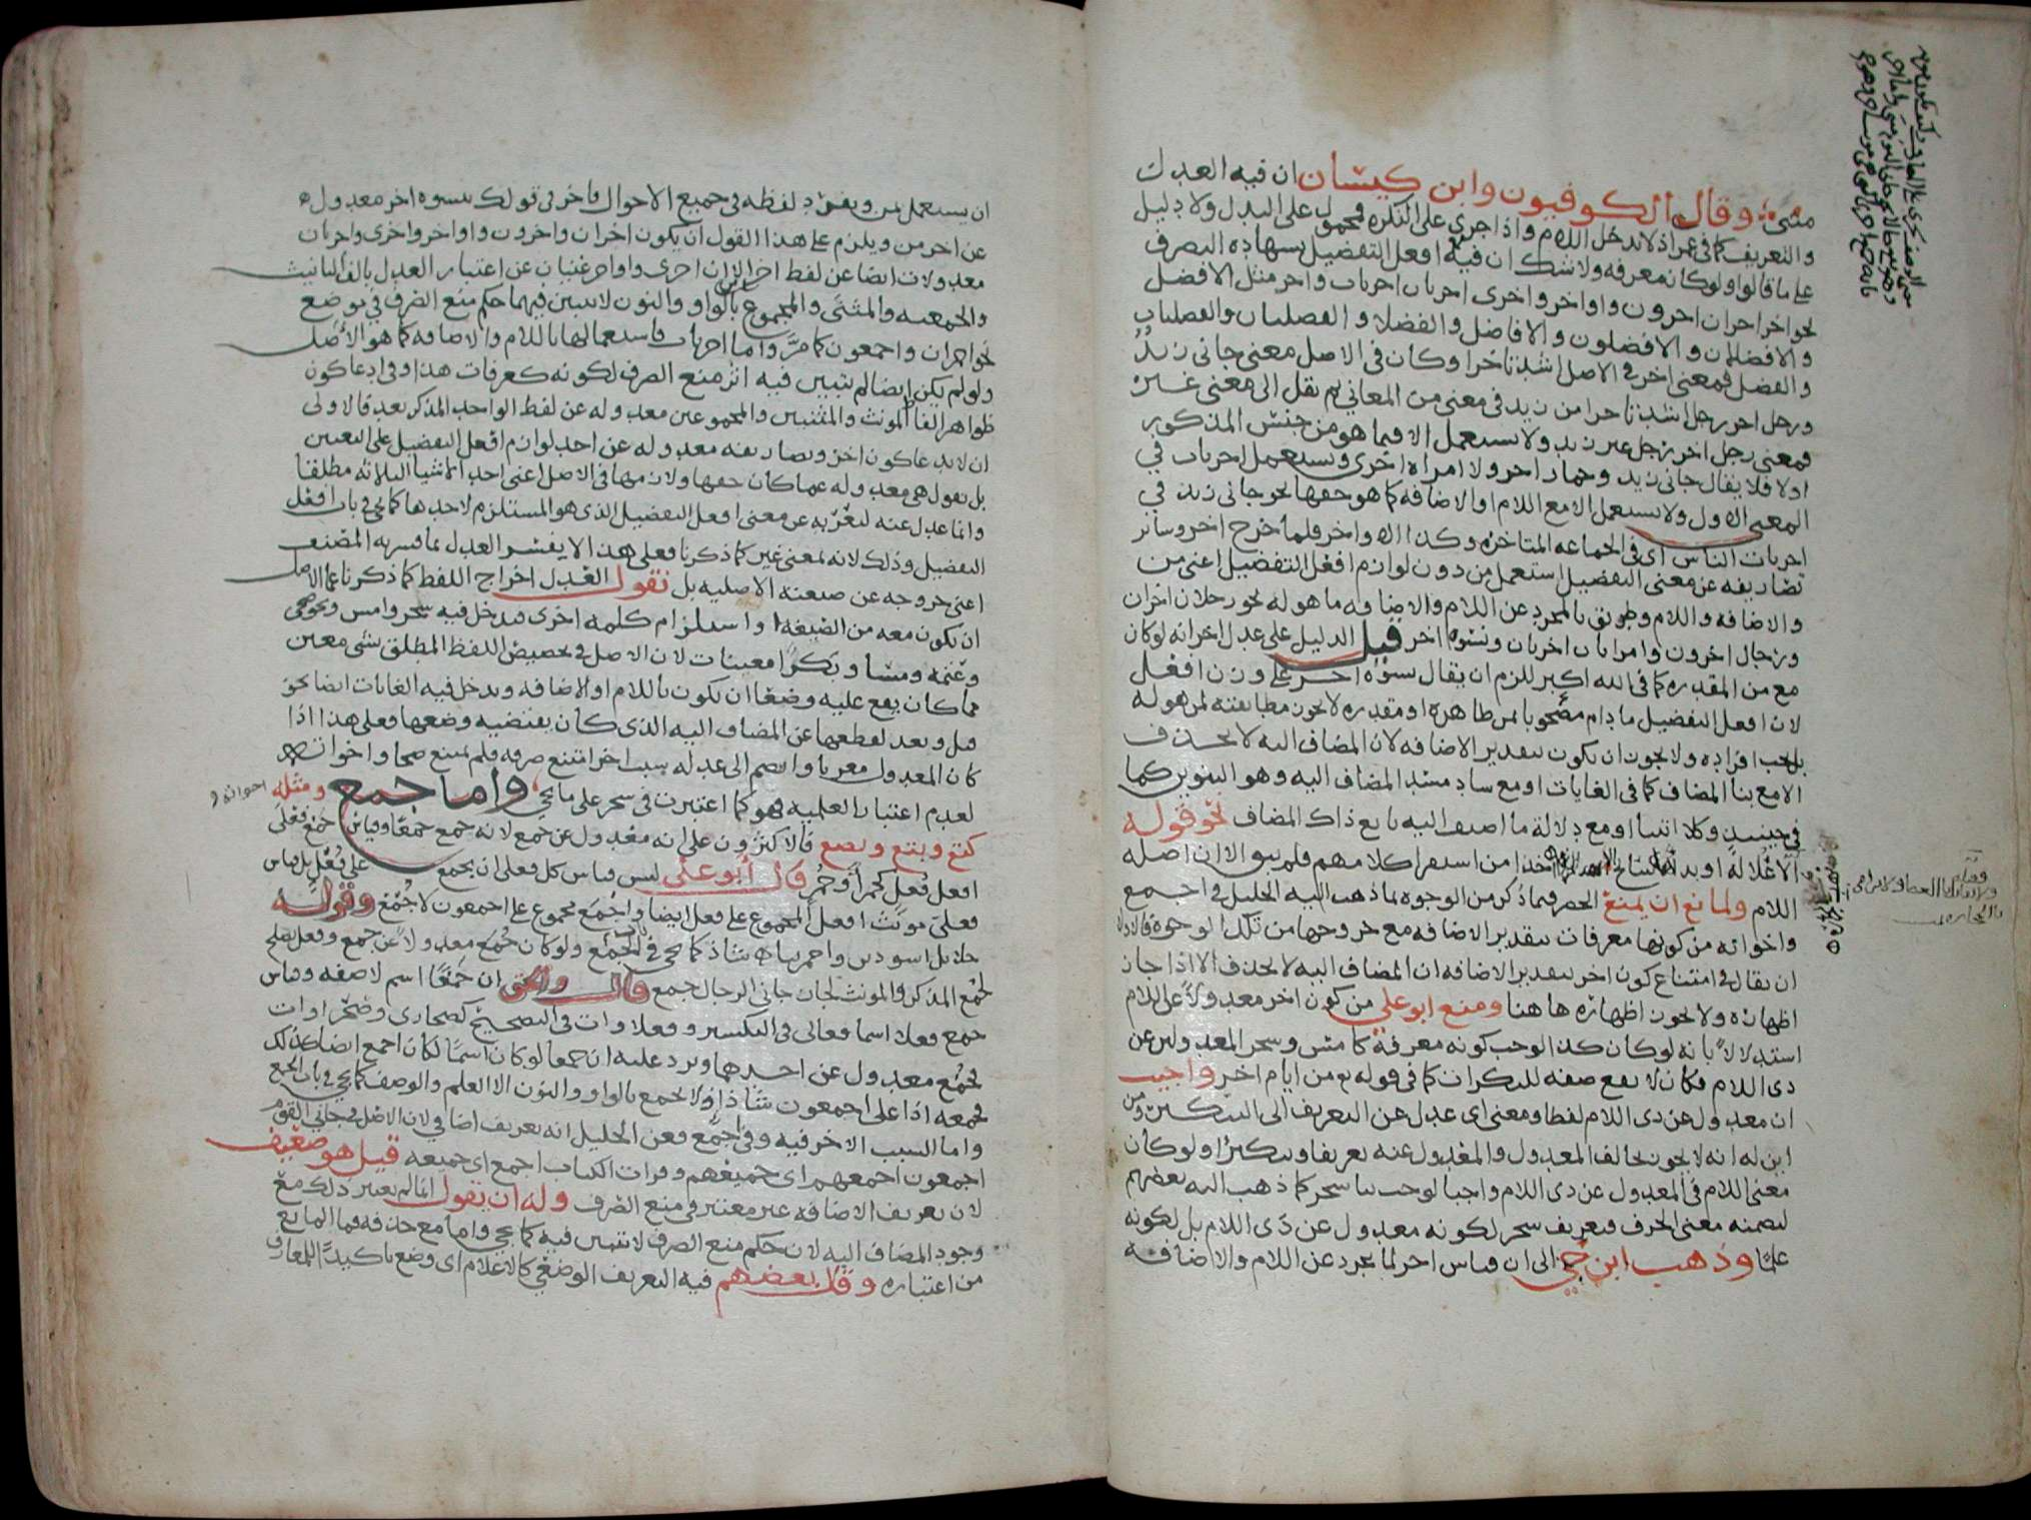 مثنى وقال الكوفيون وابن كيسان ان فيه العدل
والتعريف كما في عمر اذ لا يدخل اللام واذا جرى على النكرة فمحمول على البدل ولا دليل
على ما قالوا ولو كان معرفه ولا شك ان فيه افعل التفضيل بشهاده التصرف
نحو اخر اخران اخرون واواخر واخرى اخريان اخريات واخر مثل الافضل
والافضلان والافضلون والافاضل والفضلى والفضليان والفضليات
والفضل فمعنى اخر في الاصل اشد تأخرا وكان في الاصل معنى جاني زيد
ورجل اخر رجل اشد تاخرا من زيد في معنى من المعاني ثم نقل الى معنى غير
فمعنى رجل اخر رجل غير زيد ولا يستعمل الا فيما هو من جنس المذكور
اولا فلا يقال جاني زيد وحمار اخر ولا امراه اخرى ويستعمل اخريات في
المعنى الاول ولا يستعمل الا مع اللام او الاضافه كما هو حقها نحو جاني زيد في
اخريات الناس اي في الجماعه المتاخره وكذا الاواخر فلما خرج اخر وسائر
تصاريفه عن معنى التفضيل استعمل من دون لوازم افعل التفضيل اعني من
والاضافه واللام وطوبق بالمجرد عن اللام والاضافه ما هو له نحو رجلان اخران
ورجال اخرون وامراتان اخريان ونسوه اخر قيل الدليل على عدل اخر انه لو كان
مع من المقدره كما في الله اكبر للزم ان يقال نسوه اخر على وزن افعل
لان افعل التفضيل ما دام مصحوبا بمن ظاهره او مقدره لا يجوز مطابقته لمن هو له
بل يجب افراده ولا يجوز ان يكون بتقدير الاضافه لان المضاف اليه لا يحذف
الا مع بنا المضاف كما في الغايات او مع ساد مسد المضاف اليه وهو التنوين كما
في حينئذ وكلا اتينا او مع دلالة ما اضيف اليه تابع ذاك المضاف نحو قوله
الا علالة او بداهة سابح اخذا من استقرا كلامهم فلم يبق الا ان اصله
اللام ولمانع ان يمنع الحصر فيما ذكر من الوجوه لما ذهب اليه الخليل في اجمع
واخواته من كونها معرفات بتقدير الاضافه مع خروجها من تلك الوجوه فالاولى
ان يقال في امتناع كون اخر بتقدير الاضافه ان المضاف اليه لا يحذف الا اذا جاز
اظهاره ولا يجوز اظهاره هاهنا ومنع ابو علي من كون اخر معدولا عن اللام
استدلالا بانه لو كان كذا لوجب كونه معرفة كامس وسحر المعدولين عن
ذي اللام فكان لا يقع صفه للنكرات كما في قوله تع من ايام اخر واجيب
انه معدول عن ذي اللام لفظا ومعنى اي عدل عن التعريف الى التنكير ومن
اين له انه لا يجوز تخالف المعدول والمعدول عنه تعريفا وتنكيرا ولو كان
معنى اللام في المعدول عن ذي اللام واجبا لوجب بنا سحر كما ذهب اليه بعضهم
لتضمنه معنى الحرف فتعريف سحر لكونه معدول عن ذي اللام بل لكونه
علما وذهب ابن جني الى ان قياس اخر لما تجرد عن اللام والاضافة
ان يستعمل بمن ويفرد لفظه في جميع الاحوال فاخر في قولك بنسوه اخر معدول
عن اخر من ويلزم على هذا القول ان يكون اخران واخرون واواخر واخرى واخريان
معدولات ايضا عن لفظ اخر الا ان اخرى واواخر غنيان عن اعتبار العدل بالف التانيث
والجمعيه والمثنى والمجموع بالواو والنون لا يتبين فيهما حكم منع الصرف في موضع
نحو اخران واجمعون كما مر واما اخريات فاستعمالها باللام والاضافه كما هو الاصل
ولو لم يكن ايضا لم يتبين فيه اثر منع الصرف لكونه كعرفات هذا وفي ادعا كون
ظواهر الفاظ المونث والمثنيين والمجموعين معدوله عن لفظ الواحد المذكر بعد فالاولى
ان لا يدعا كون اخر وتصاريفه معدوله عن احد لوازم افعل التفضيل على التعيين
بل نقول هي معدوله عما كان حقها ولازمها في الاصل اعني احد الاشيا الثلاثه مطلقا
وانما عدل عنه لتعريه عن معنى افعل التفضيل الذي هو المستلزم لاحدها كما يجي في باب افعل
التفضيل وذلك لانه لمعنى غير كما ذكرنا فعلى هذا لا يفسر العدل بما فسر به المصنف
اعني خروجه عن صيغته الاصليه بل نقول العدل اخراج اللفظ كما ذكرنا عما الاصل
ان يكون معه من الصيغه او استلزام كلمه اخرى فيدخل فيه سحر وامس ونحو ضحى
وعتمه ومسا وبكرا معينات لان الاصل في تخصيص اللفظ المطلق بشي معين
مما كان يقع عليه وضعا ان يكون باللام او الاضافه ويدخل فيه الغايات ايضا نحو
قبل وبعد لقطعها عن المضاف اليه الذي كان يقتضيه وضعها فعلى هذا اذا
كان المعدول معربا وانضم الى عدله سبب اخر امتنع صرفه فلم يمنع ضحى واخواته
لعدم اعتبار العلميه فيه كما اعتبرت في سحر على ما يجي واما جمع ومثله اخواته و
كتع وبتع وبصع فالاكثرون على انه معدول عن جمع لانه جمع جمعا وقياس جمع فعلى
افعل فعل كحمرا وحمر قال ابو علي ليس قياس كل فعلى ان يجمع على فعل بل قياس
فعلى مونث افعل المجموع على فعل ايضا واجمع مجموع على اجمعون لا جمع وقوله
حلائل اسودين واحمرينا شاذ كما يجي في باب الجمع ولو كان جمع معدولا عن جمع وفعل يصلح
لجمع المذكر والمونث لجاز جاني الرجال جمع قال والحق ان جمعا اسم لا صفه وقياس
جمع فعلا اسما فعالى في التكسير وفعلاوات في التصحيح كصحارى وصحراوات
فجمع معدول عن احدهما ويرد عليه ان جمعا لو كان اسما لكان اجمع ايضا كذلك
فجمعه اذا على اجمعون شاذ اذ لا يجمع بالواو والنون الا العلم والوصف كما يجي في باب الجمع
واما السبب الاخر فيه وفي اجمع فعن الخليل انه تعريف اضافي لان الاصل في جاني القوم
اجمعون اجمعهم اي جميعهم وقرات الكتاب اجمع اي جميعه قيل هو ضعيف
لان تعريف الاضافه غير معتبر في منع الصرف وله ان يقول انما لم يعتبر ذلك مع
وجود المضاف اليه لان حكم منع الصرف لا يتبين فيه كما يجي واما مع حذفه فما المانع
من اعتباره وقال بعضهم فيه التعريف الوضعي كالاعلام اي وضع تاكيدا للمعارف